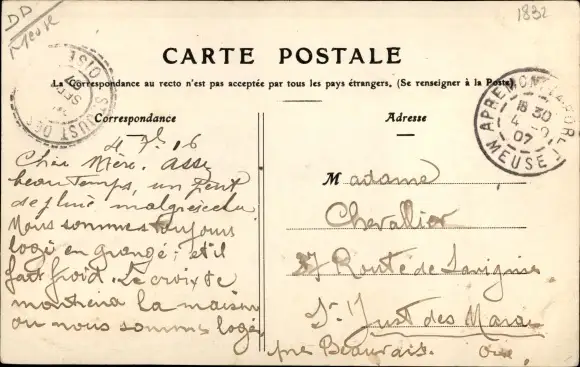 DD
Meuse
1832
CARTE POSTALE
La Correspondance au recto n'est pas acceptée par tous les pays étrangers. (Se renseigner à la Poste)
Correspondance
Adresse
ST JUST DES
OISE
SEPT
07
APREMONT-LA-FORÊT
18 30
4
07
MEUSE
Chère Mère. Assé
beau Temps, un peut
de pluie malgrés cela
Nous sommes toujours
logé en grange; et il
fait froid. La croix te
montrera la maison
ou nous sommes logé
Madame
Chevallier
37 Route de Savignies
St Just des Marais
près Beauvais. Oise